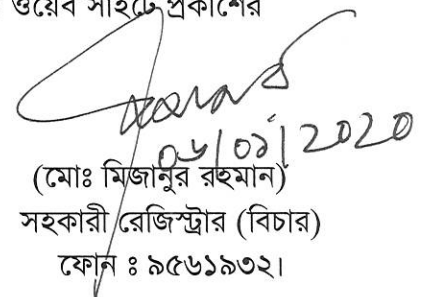 ওয়েব সাইটে প্রকাশের
০৬/০১/2020
(মোঃ মিজানুর রহমান)
সহকারী রেজিস্ট্রার (বিচার)
ফোন ঃ ৯৫৬১৯৩২।